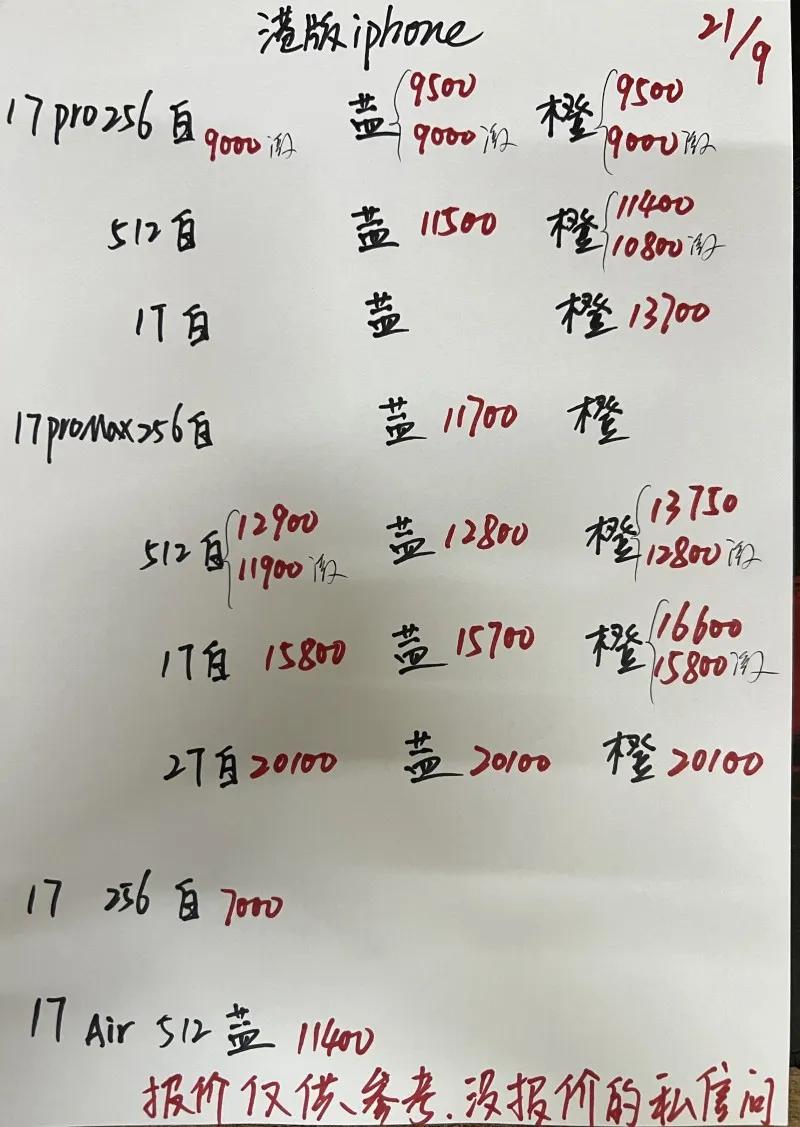 港版iphone 21/9
17pro256白 9000激 蓝 9500 9000激 橙 9500 9000激
512白 蓝 11500 橙 11400 10800激
1T白 蓝 橙 13700
17proMax256白 蓝 11700 橙
512白 12900 11900激 蓝 12800 橙 13750 12800激
1T白 15800 蓝 15700 橙 16600 15800激
2T白 20100 蓝 20100 橙 20100
17 256 白 7000
17 Air 512 蓝 11400
报价仅供参考.没报价的私信问